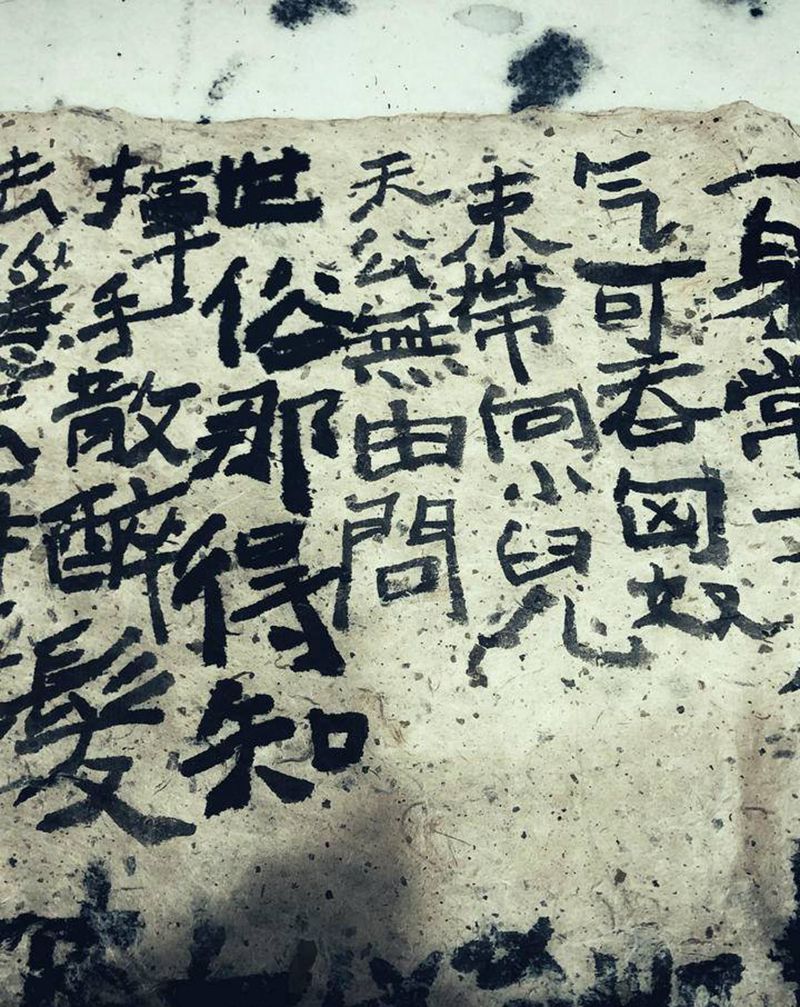 一身常
气可吞匈奴
束帶何小兒
天公無由問
世俗那得知
揮手散醉髮
去隱